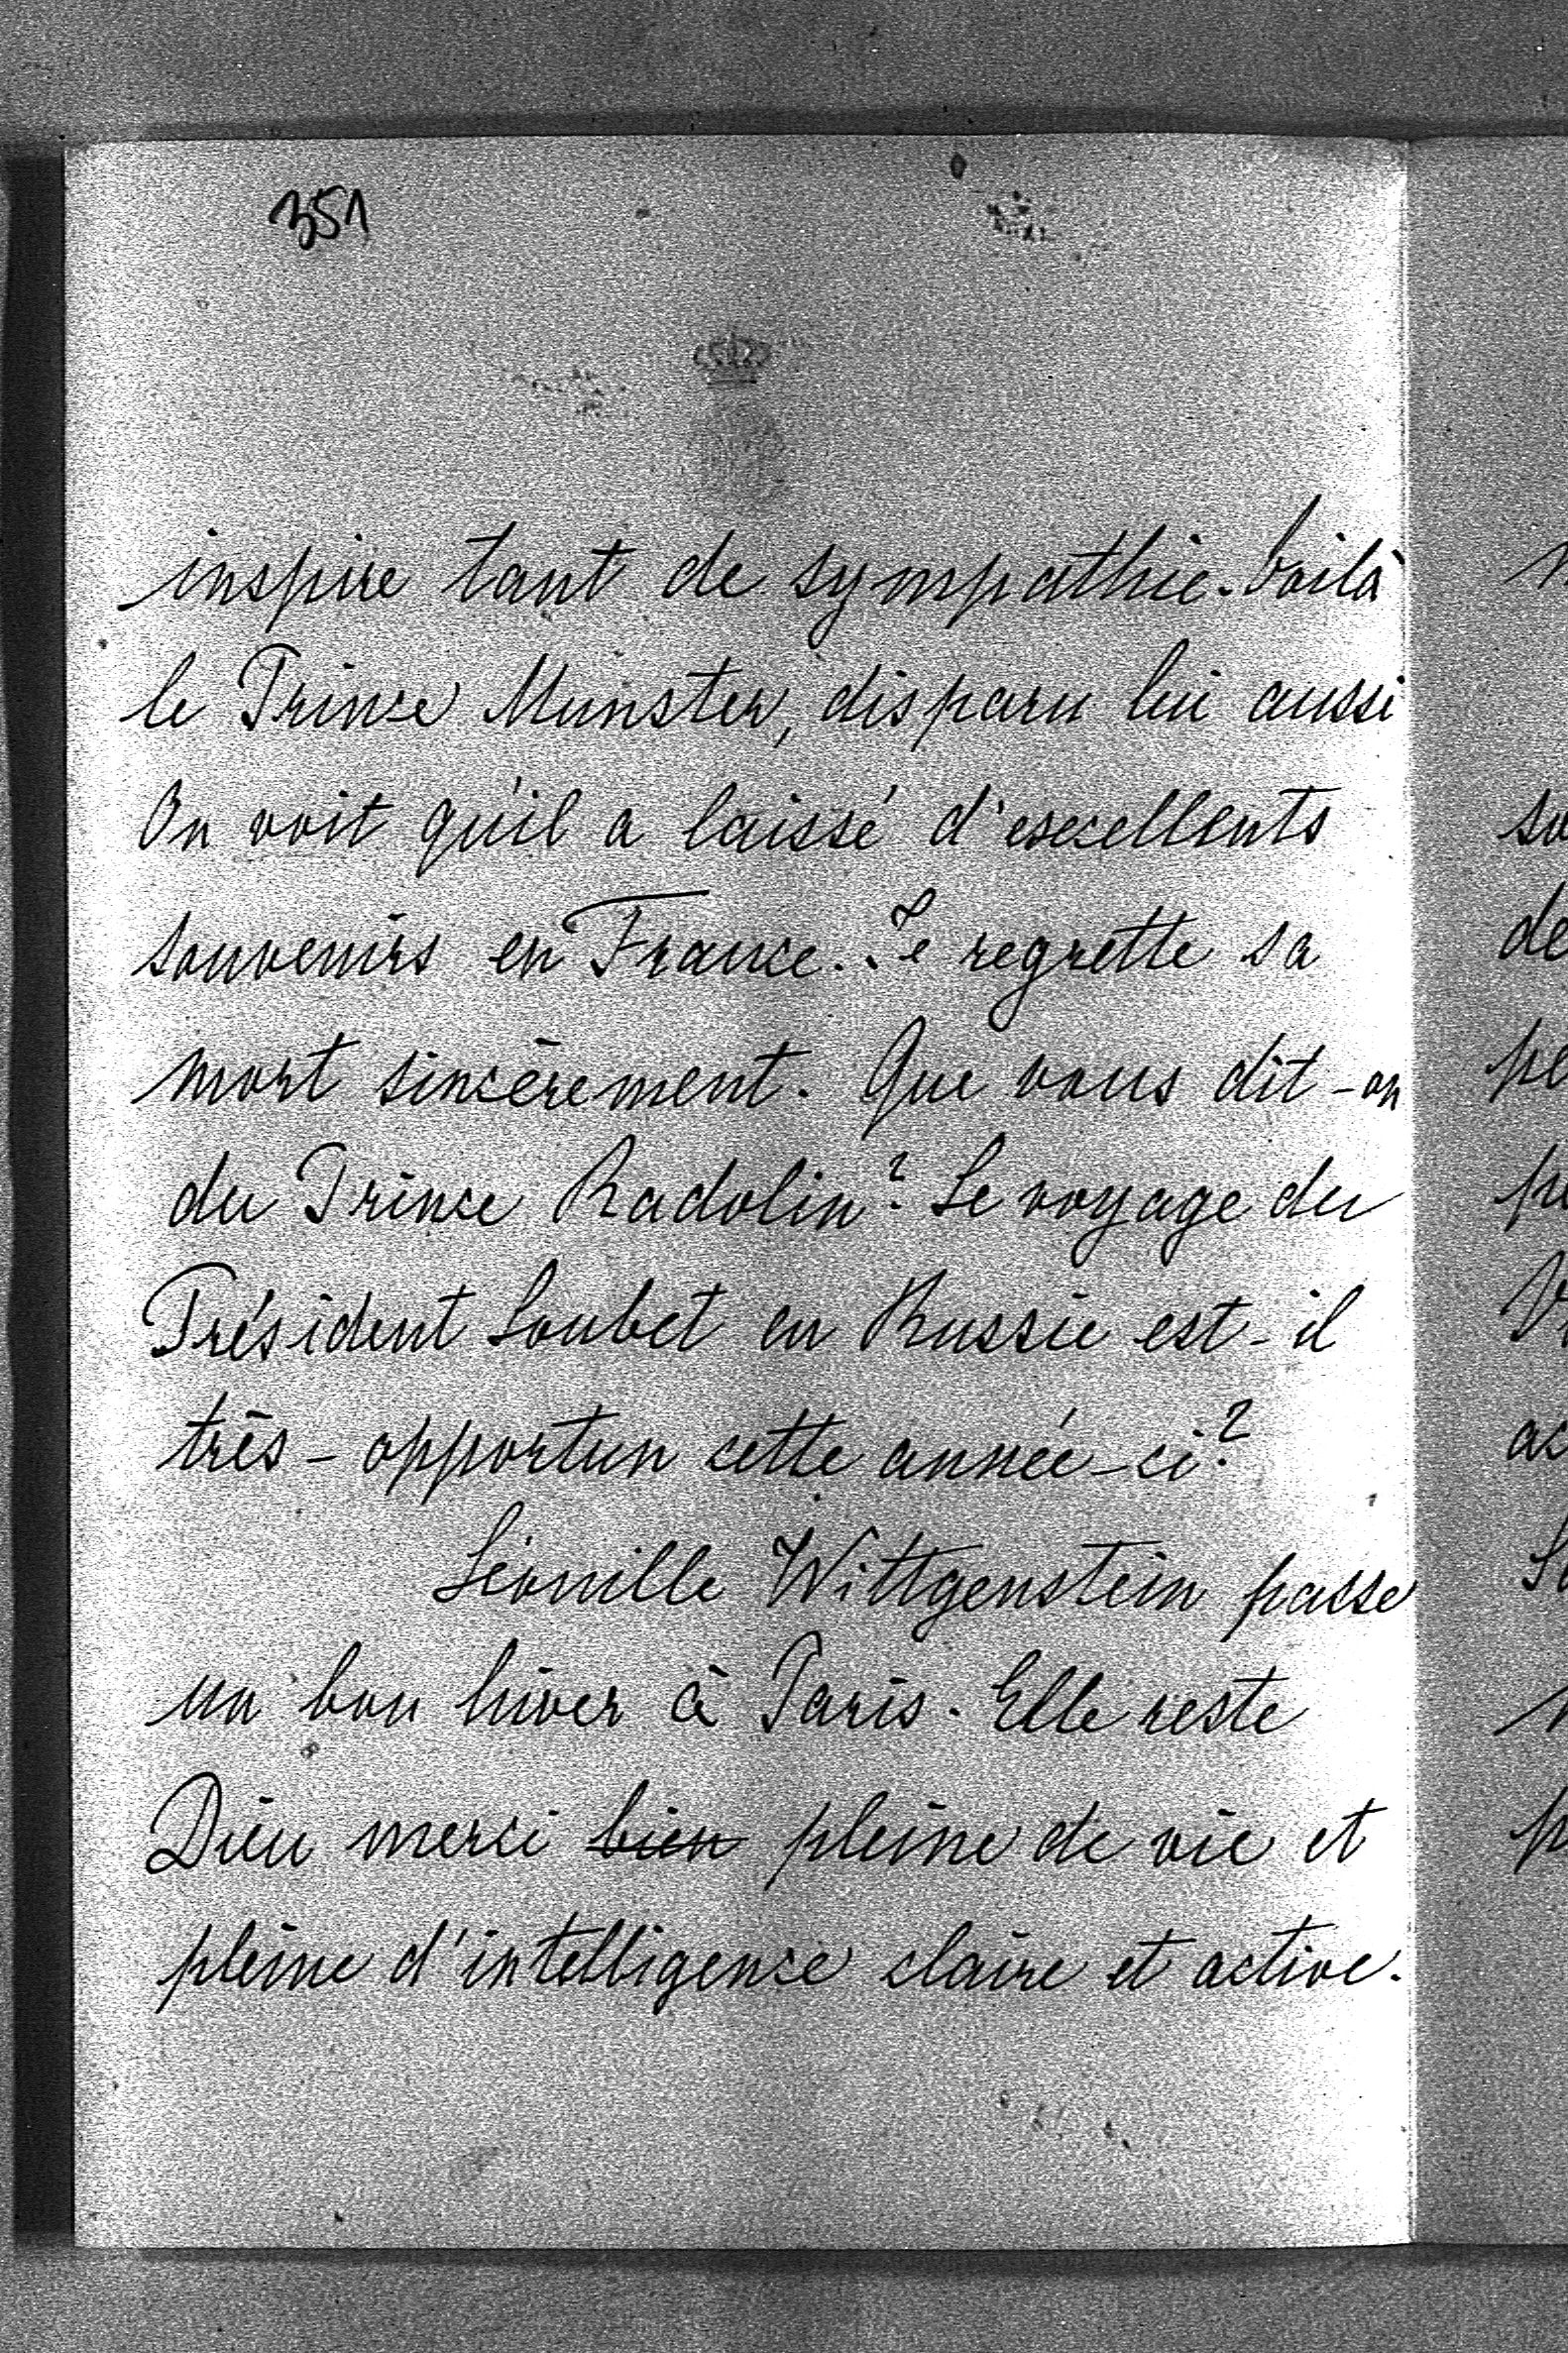 351
inspire tant de sympathie. Voilà
le Prince Munster, disparu lui aussi
On voit qu'il a laissé d'excellents
souvenirs en France. Je regrette sa
mort sincèrement. Que vous dit-on
du Prince Radolin? Le voyage du
Président Loubet en Russie est-il
très-opportun cette année-ci?
Léonille Wittgenstein passe
un bon hiver à Paris. Elle reste
Dieu merci bien pleine de vie et
pleine d'intelligence claire et active.